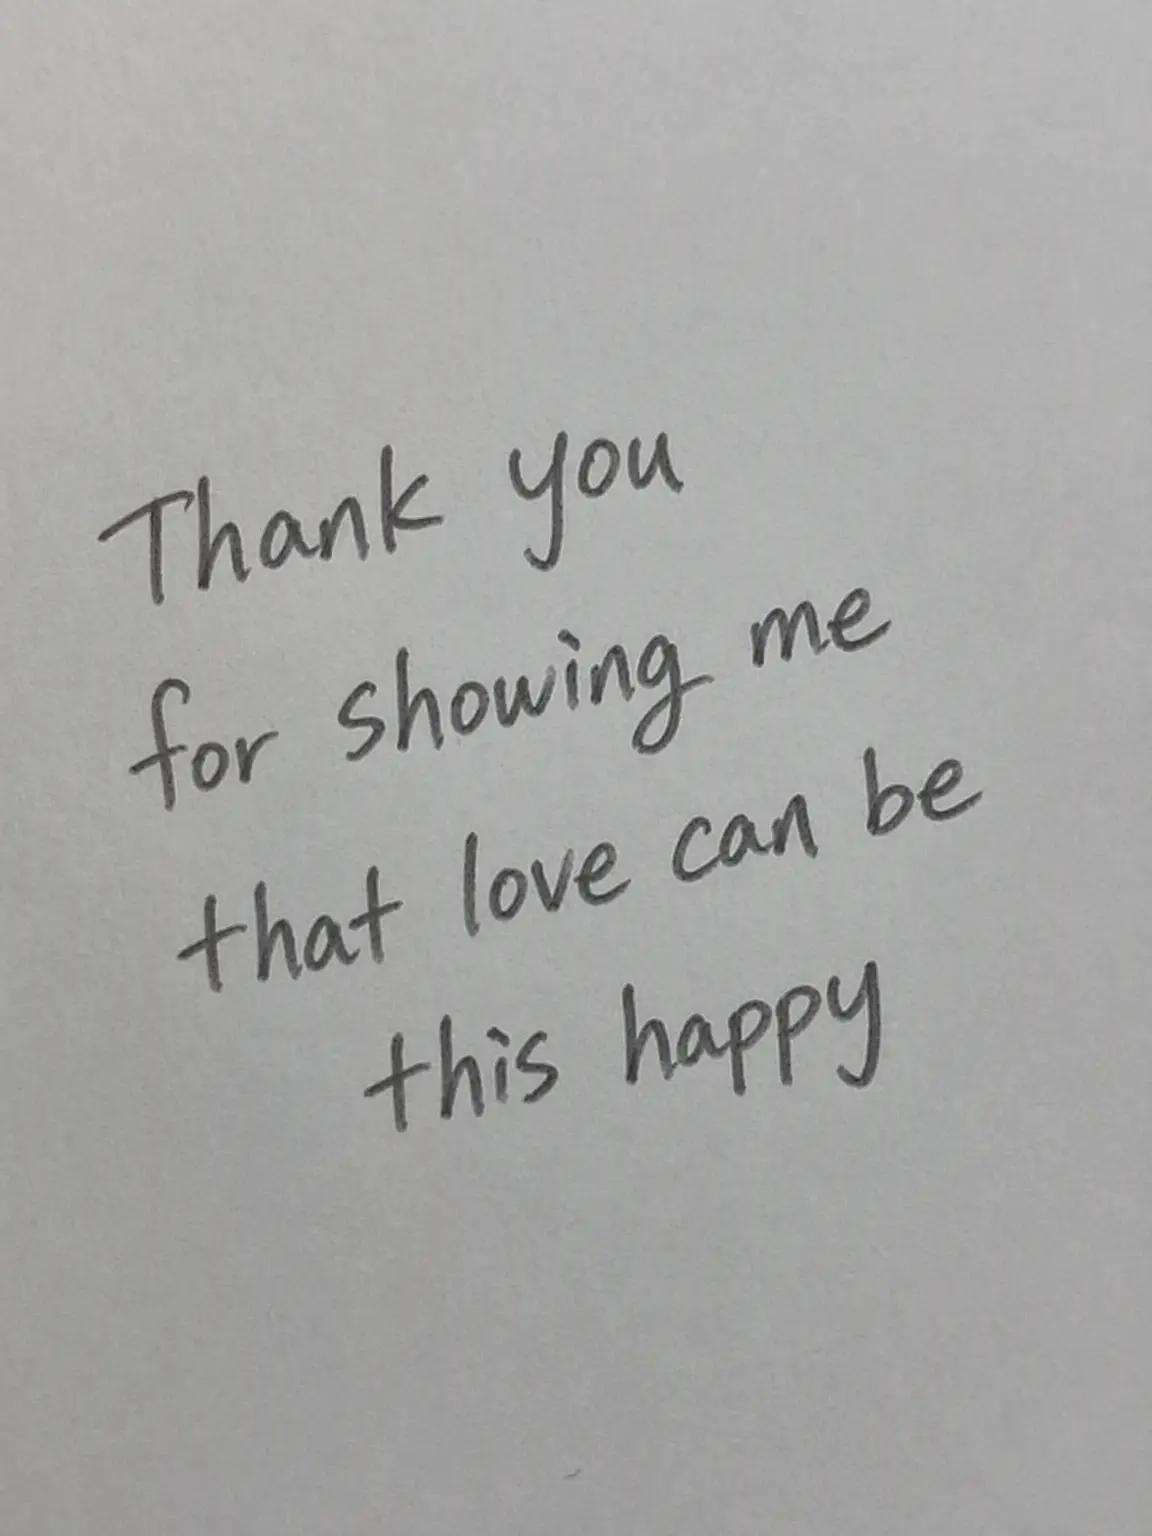 Thank you
for showing me
that love can be
this happy